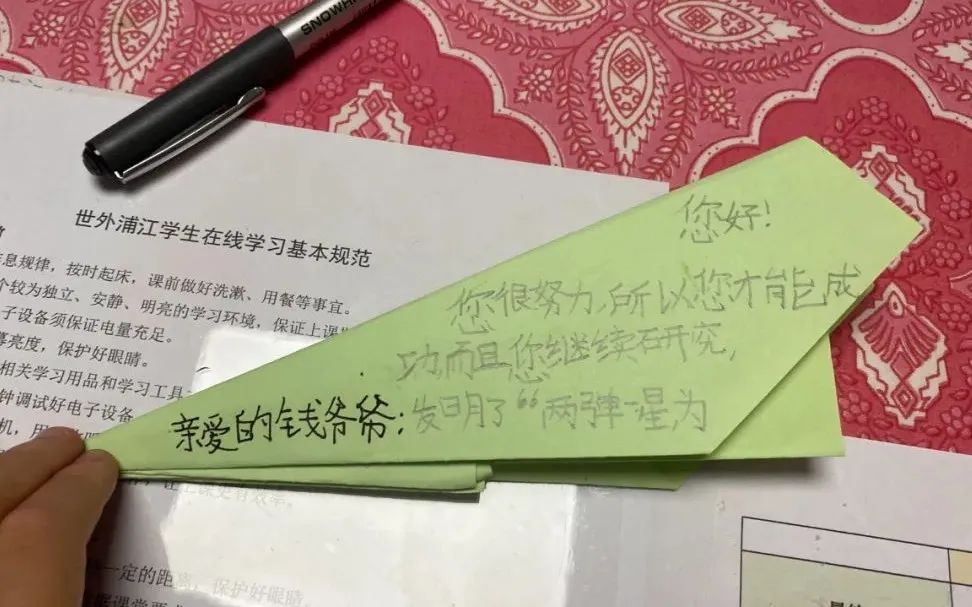 SNOWH
世外浦江学生在线学习基本规范
息规律，按时起床，课前做好洗漱、用餐等事宜。
个较为独立、安静、明亮的学习环境，保证上课
子设备须保证电量充足。
亮度，保护好眼睛。
相关学习用品和学习工具
钟调试好电子设备
机，用
一定的距离，保护好眼睛。
您好！
您很努力，所以您才能成
功而且您继续研究，
亲爱的钱爷爷：发明了“两弹一星为